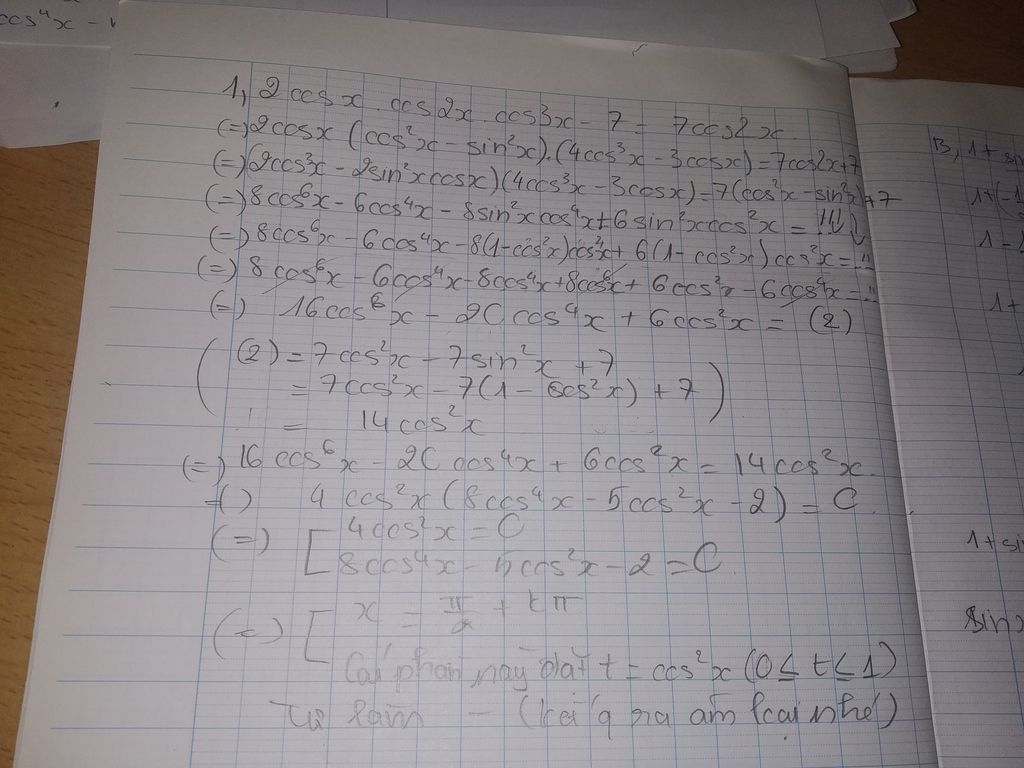 cos⁴x -
1, 2cosx.cos2x.cos3x - 7 = 7cos2x
(=) 2cosx (cos²x - sin²x).(4cos³x - 3cosx) = 7cos2x+7
(=) (2cos³x - 2sin²xcosx)(4cos³x - 3cosx) = 7(cos²x - sin²x)+7
(=) 8cos⁶x - 6cos⁴x - 8sin²xcos⁴x + 6sin²xcos²x =
(=) 8cos⁶x - 6cos⁴x - 8(1-cos²x)cos⁴x + 6(1 - cos²x)cos²x = "
(=) 8cos⁶x - 6cos⁴x - 8cos⁴x + 8cos⁶x + 6cos²x - 6cos⁴x = "
(=) 16cos⁶x - 20cos⁴x + 6cos²x = (2)
(2) = 7cos²x - 7sin²x + 7
= 7cos²x - 7(1 - cos²x) + 7
= 14cos²x
(=) 16cos⁶x - 20cos⁴x + 6cos²x = 14cos²x
4cos²x (8cos⁴x - 5cos²x - 2) = 0
(=) [ 4cos²x = 0
8cos⁴x - 5cos²x - 2 = 0
(=) [ x = π/2 + kπ
Cái phần này đặt t = cos²x (0 ≤ t ≤ 1)
Tự làm - (kq ra âm loại nhé)
B, 1 + sin
1+(-1
1 -
1+
1+sin
sinx